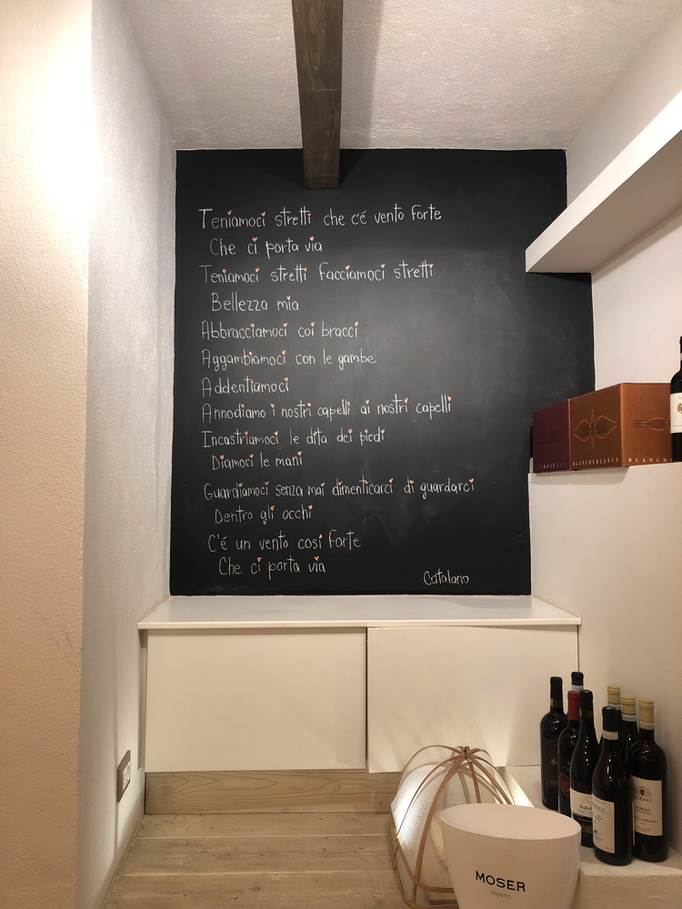 Teniamoci stretti che c'é vento forte
Che ci porta via
Teniamoci stretti facciamoci stretti
Bellezza mia
Abbracciamoci coi bracci
Aggambiamoci con le gambe
Addentiamoci
Annodiamo i nostri capelli ai nostri capelli
Incastriamoci le dita dei piedi
Diamoci le mani
Guardiamoci senza mai dimenticarci di guardarci
Dentro gli occhi
C'é un vento così forte
Che ci porta via
Catalano
BLANCDEBLANCS
BLANCD
MOSER
TRENTO